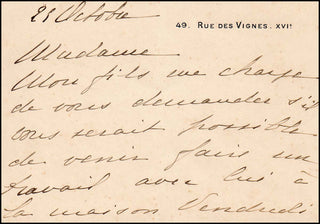 25 Octobre
49. RUE DES VIGNES. XVIE
Madame
Mon fils me charge
de vous demander s'il
vous serait possible
de venir faire un
travail avec lui à
la maison Vendredi